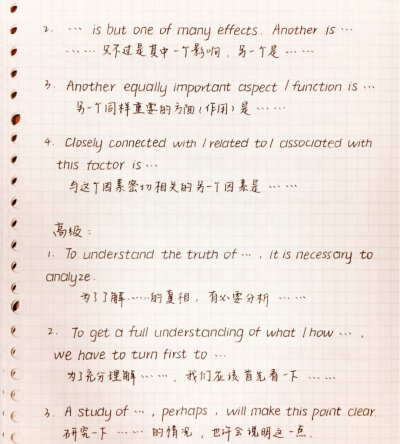 2. … is but one of many effects. Another is …
…… 只不过是其中一个影响，另一个是 ……
3. Another equally important aspect / function is …
另一个同样重要的方面（作用）是 ……
4. Closely connected with / related to / associated with
this factor is …
与这个因素密切相关的另一个因素是 ……
高级：
1. To understand the truth of …, it is necessary to
analyze.
为了了解……的真相，有必要分析 ……
2. To get a full understanding of what / how …,
we have to turn first to …
为了充分理解 ……，我们应该首先看一下 ……
3. A study of …, perhaps, will make this point clear.
研究一下 …… 的情况，也许会说明这一点.